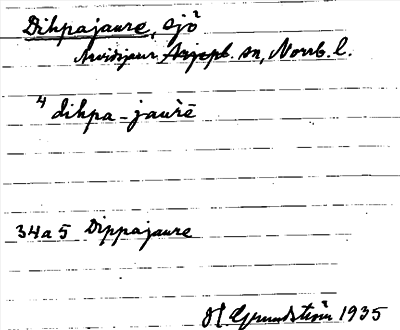 Dihpajaure, sjö
Arvidsjaur Arjepl. sn, Norrb. l.
4 dihpa-jaùrē
34a5 Dippajaure
H. Grundström 1935